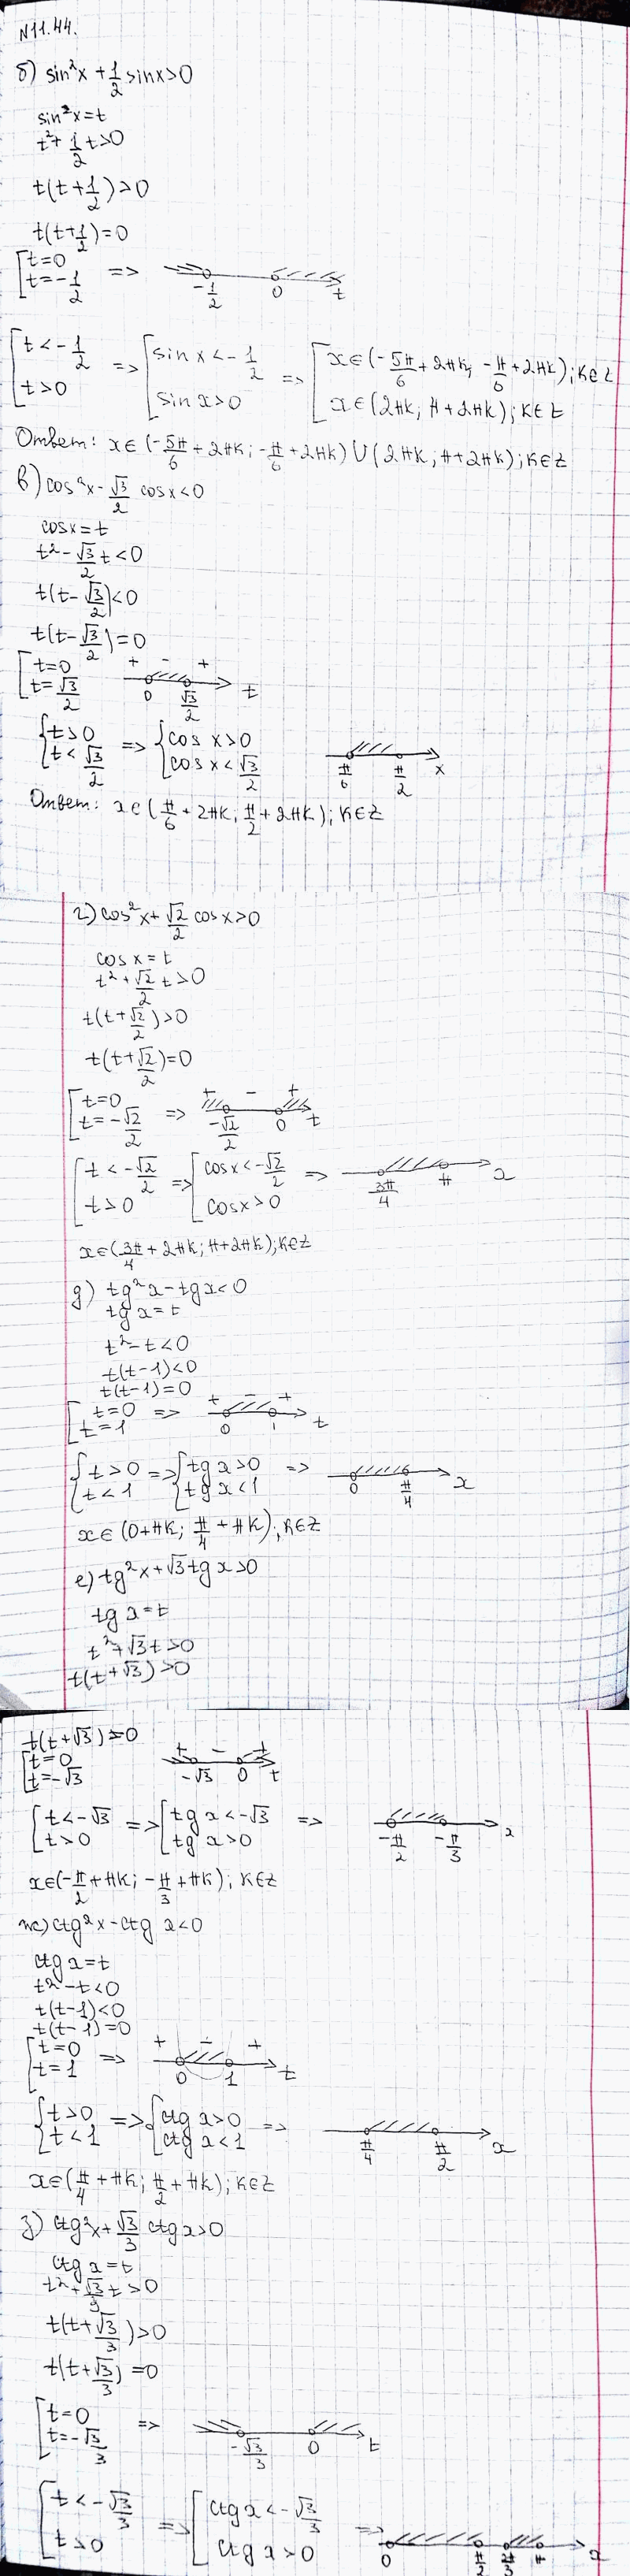 N11.44.
б) sin²x + 1/2 sinx>0
sin²x=t
t²+ 1/2 t>0
t(t+1/2)>0
t(t+1/2)=0
[t=0 t=-1/2 => -1/2 0 t
[t<-1/2 t>0 => [sin x<-1/2 sin x>0 => [x∈(-5π/6+2πk; -π/6+2πk); k∈Z x∈(2πk; π+2πk); k∈Z
Ответ: x∈(-5π/6+2πk; -π/6+2πk)∪(2πk; π+2πk); k∈Z
в) cos²x-√3/2 cosx<0
cosx=t
t²-√3/2 t<0
t(t-√3/2)<0
t(t-√3/2)=0
[t=0 t=√3/2 + - + 0 √3/2 t
{t>0 t<√3/2 => {cos x>0 cos x<√3/2 π/6 π/2 x
Ответ: x∈(π/6+2πk; π/2+2πk); k∈Z
г) cos²x+√2/2 cosx>0
cos x=t
t²+√2/2 t>0
t(t+√2/2)>0
t(t+√2/2)=0
[t=0 t=-√2/2 => + - + -√2/2 0 t
[t<-√2/2 t>0 => [cosx<-√2/2 cosx>0 => 3π/4 π x
x∈(3π/4+2πk; π+2πk); k∈Z
д) tg²x-tgx<0
tg x=t
t²-t<0
t(t-1)<0
t(t-1)=0
[t=0 t=1 => + - + 0 1 t
{t>0 t<1 => {tg x>0 tg x<1 => 0 π/4 x
x∈(0+πk; π/4+πk); k∈Z
е) tg²x+√3tg x>0
tg x=t
t²+√3t>0
t(t+√3)>0
t(t+√3)=0
[t=0 t=-√3 + - + -√3 0 t
[t<-√3 t>0 => [tg x<-√3 tg x>0 => -π/2 -π/3 x
x∈(-π/2+πk; -π/3+πk); k∈Z
ж) ctg²x-ctg x<0
ctg x=t
t²-t<0
t(t-1)<0
t(t-1)=0
[t=0 t=1 => + - + 0 1 t
{t>0 t<1 => {ctg x>0 ctg x<1 => π/4 π/2 x
x∈(π/4+πk; π/2+πk); k∈Z
з) ctg²x+√3/3 ctg x>0
ctg x=t
t²+√3/3 t>0
t(t+√3/3)>0
t(t+√3/3)=0
[t=0 t=-√3/3 => -√3/3 0 t
[t<-√3/3 t>0 => [ctg x<-√3/3 ctg x>0 => 0 π/2 2π/3 π x